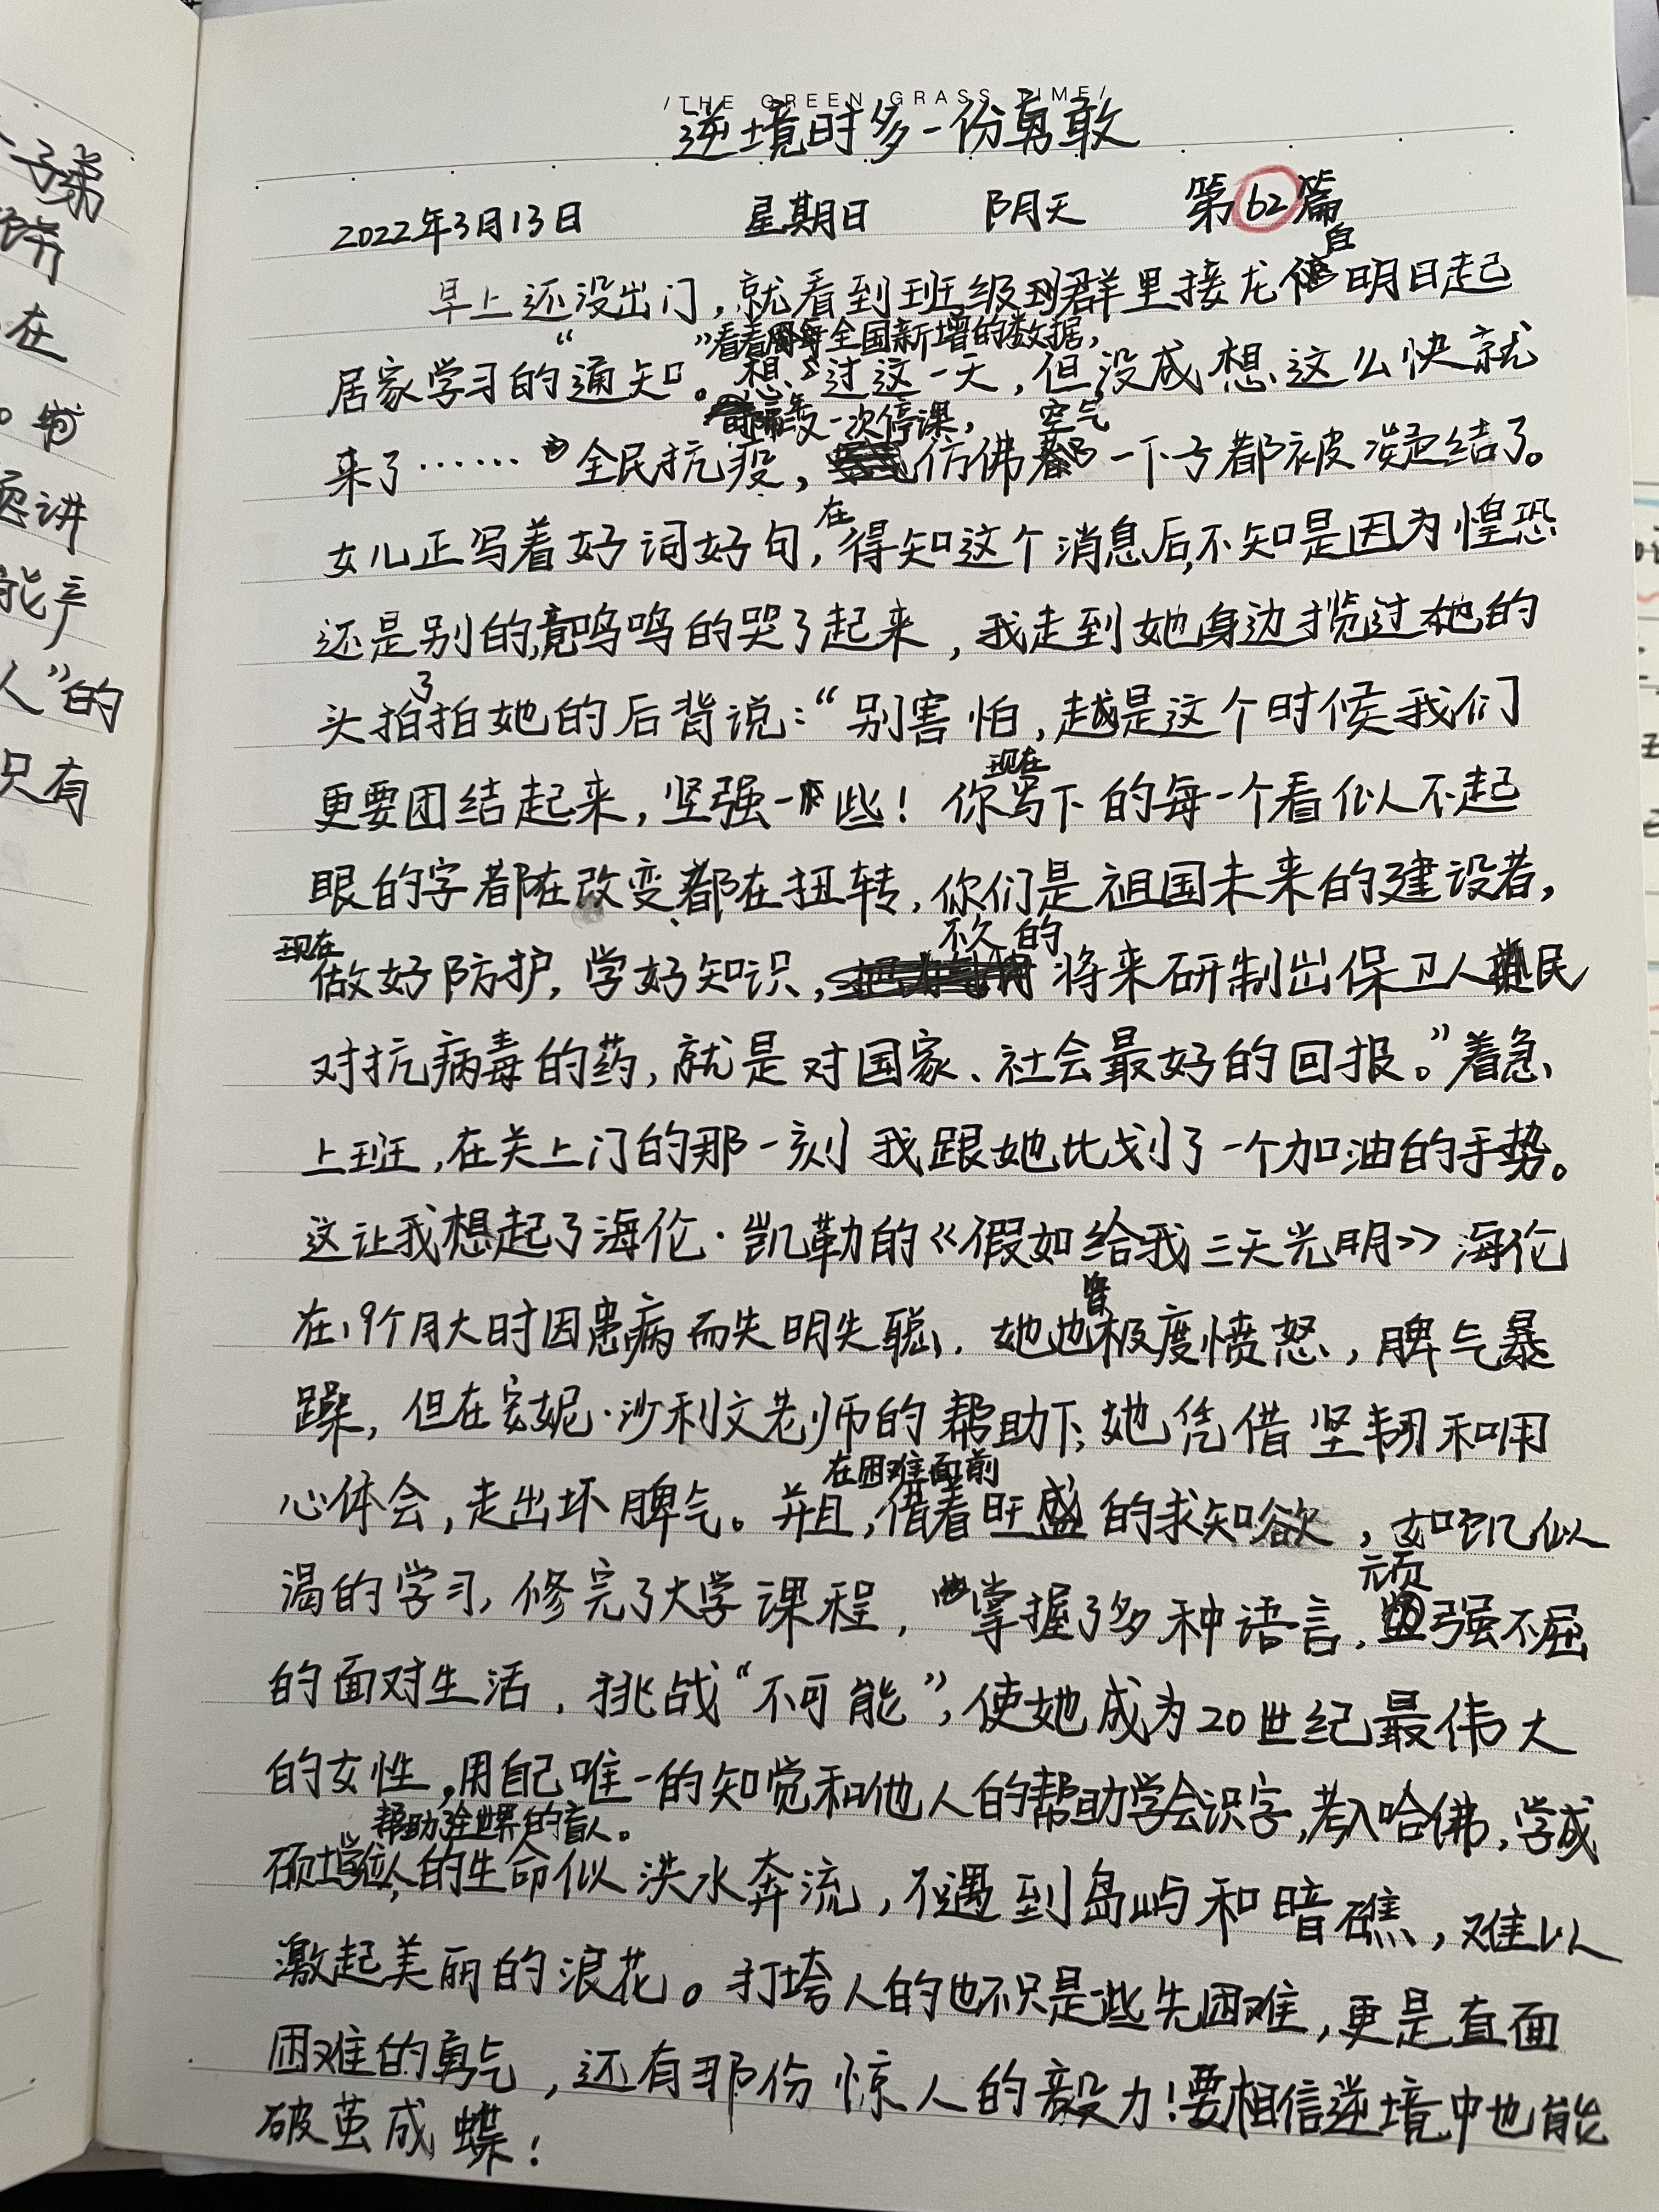 /THE GREEN GRASS TIME/
逆境时多一份勇敢
2022年3月13日 星期日 阴天 第62篇
自
早上还没出门，就看到班级群里接龙 明日起
“ ”看看 全国新增的数据，
居家学习的通知。想 过这一天，但没成想这么快就
一次停课， 空气
来了…… 全民抗疫， 仿佛 一下子都被凝结了。
在
女儿正写着好词好句，得知这个消息后，不知是因为惶恐
还是别的，竟呜呜的哭了起来，我走到她身边揽过她的
了
头拍拍她的后背说：“别害怕，越是这个时候我们
现在
更要团结起来，坚强一些！你写下的每一个看似不起
眼的字都在改变都在扭转，你们是祖国未来的建设者，
现在 不久的
做好防护，学好知识， 将来研制出保卫人民
对抗病毒的药，就是对国家、社会最好的回报。”着急
上班，在关上门的那一刻我跟她比划了一个加油的手势。
这让我想起了海伦·凯勒的《假如给我三天光明》海伦
曾
在19个月大时因患病而失明失聪，她也极度愤怒，脾气暴
躁，但在安妮·沙利文老师的帮助下，她凭借坚韧和用
在困难面前
心体会，走出坏脾气。并且，借着旺盛的求知欲，如饥似
顽
渴的学习，修完了大学课程，掌握了多种语言，强不屈
的面对生活，挑战“不可能”，使她成为20世纪最伟大
的女性，用自己唯一的知觉和他人的帮助学会识字，考入哈佛，学成
帮助了全世界的盲人。
硕士学位，人的生命似洪水奔流，不遇到岛屿和暗礁，难以
激起美丽的浪花。打垮人的也不只是些先困难，更是直面
困难的勇气，还有那份惊人的毅力！要相信逆境中也能
破茧成蝶！
子弟
饼
在
。书
讲
能产
人”的
只有